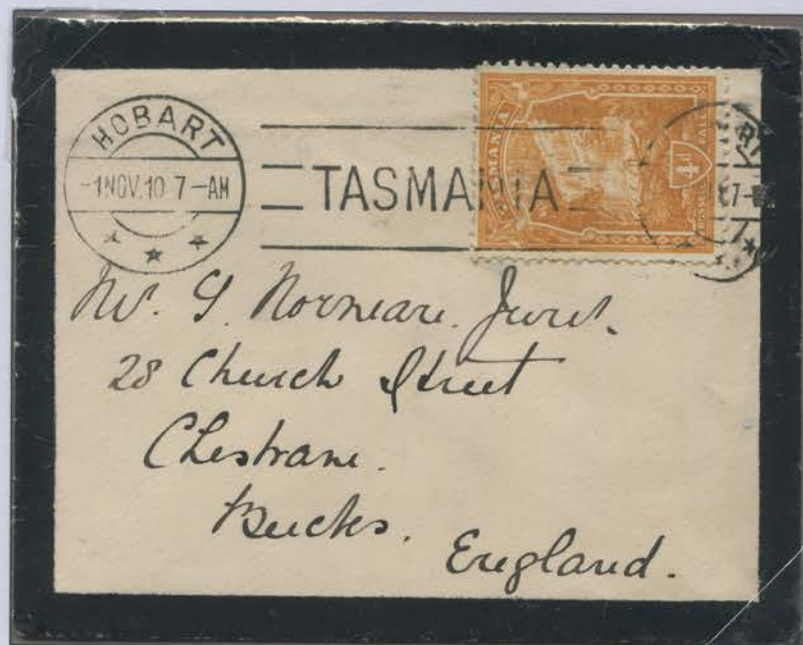 HOBART
-1 NOV.10 7-AM
TASMANIA
TASMANIA
4d
RT
7-
Mr.
28 Church Street
Chesham.
Bucks.
England.